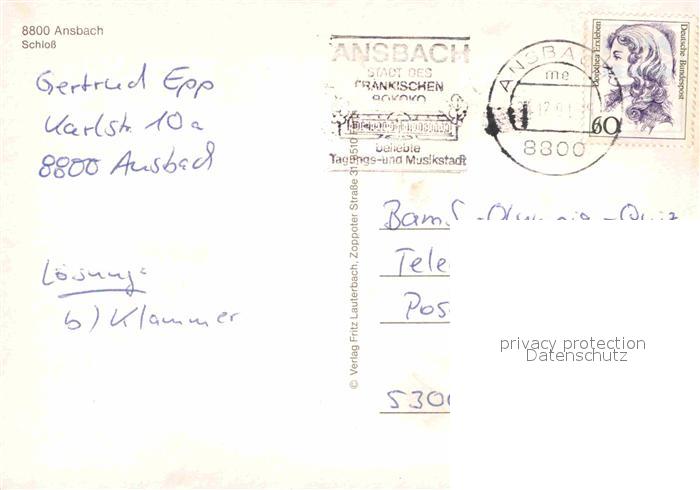 8800 Ansbach
Schloß
Gertrud Epp
Karlstr. 10a
8800 Ansbach
Lösung:
b) Klammer
© Verlag Fritz Lauterbach, Zoppoter Straße 31, 8510
ANSBACH
STADT DES
FRÄNKISCHEN
ROKOKO
beliebte
Tagungs- und Musikstadt
ANSBAC
me
8800
Dorothea Erxleben
Deutsche Bundespost
60
Tele
Pos
530
privacy protection
Datenschutz